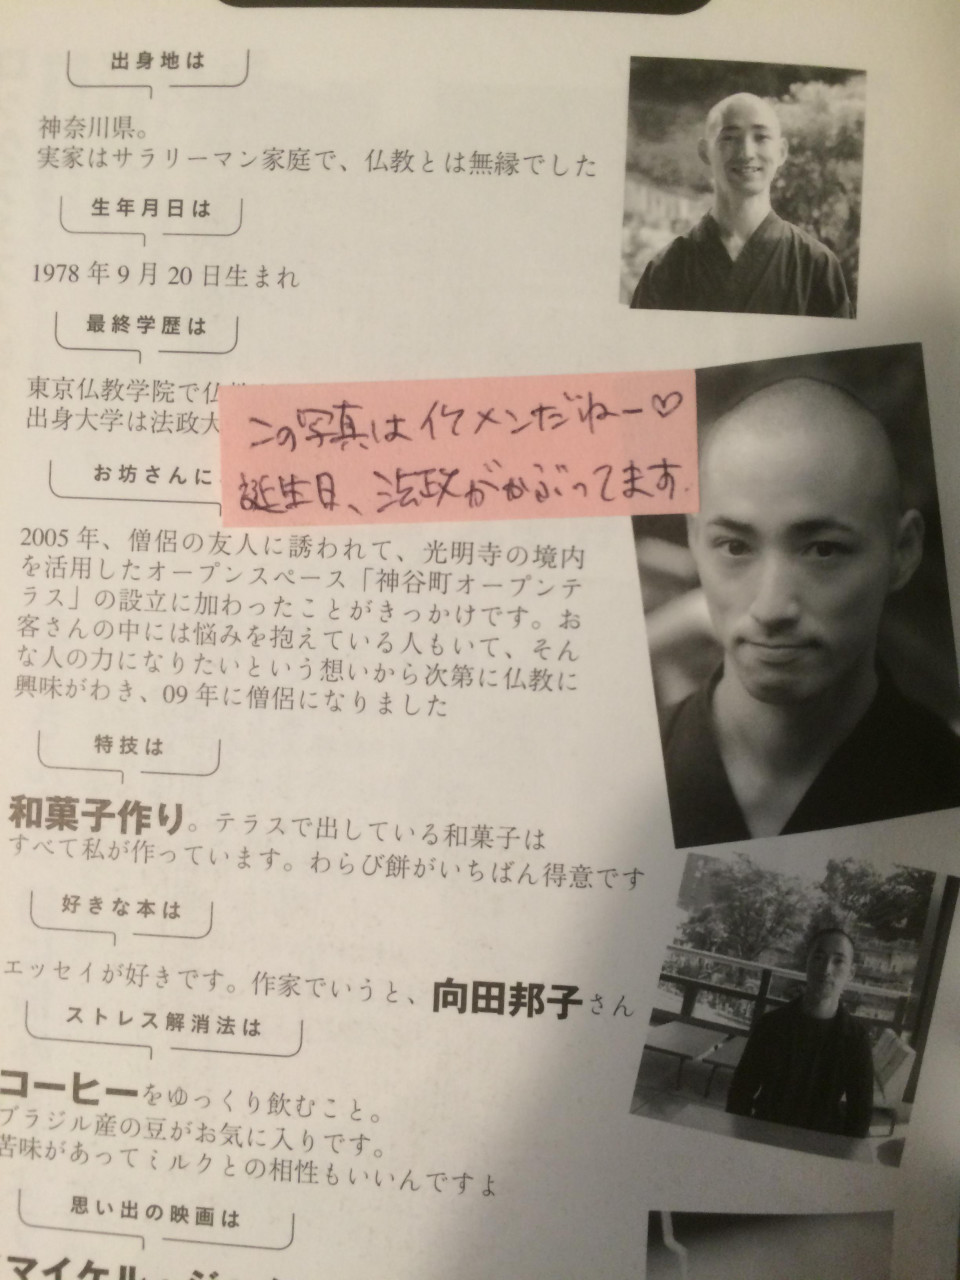 出身地は
神奈川県。
実家はサラリーマン家庭で、仏教とは無縁でした
生年月日は
1978年9月20日生まれ
最終学歴は
東京仏教学院で仏
出身大学は法政大
この写真はイケメンだねー♡
誕生日、法政がかぶってます.
お坊さんに
2005年、僧侶の友人に誘われて、光明寺の境内
を活用したオープンスペース「神谷町オープンテ
ラス」の設立に加わったことがきっかけです。お
客さんの中には悩みを抱えている人もいて、そん
な人の力になりたいという想いから次第に仏教に
興味がわき、09年に僧侶になりました
特技は
和菓子作り。テラスで出している和菓子は
すべて私が作っています。わらび餅がいちばん得意です
好きな本は
エッセイが好きです。作家でいうと、向田邦子さん
ストレス解消法は
コーヒーをゆっくり飲むこと。
ブラジル産の豆がお気に入りです。
苦味があってミルクとの相性もいいんですよ
思い出の映画は
マイケル・ジ